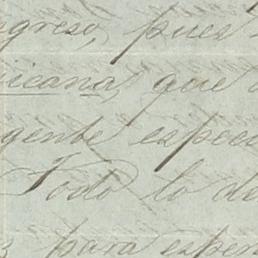 ngreso, pues
icana, que
gente espec
Todo lo de
para espe